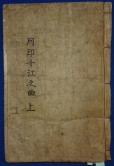 月印千江之曲 上